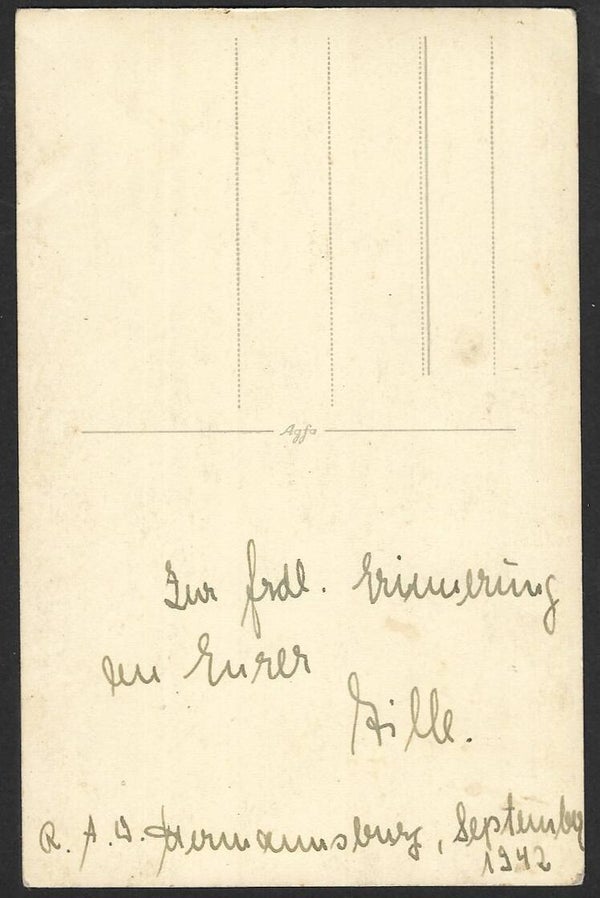 Agfa
Zur frdl. Erinnerung
an Eurer
Hille.
R. A. D. Hermannsburg, September
1942